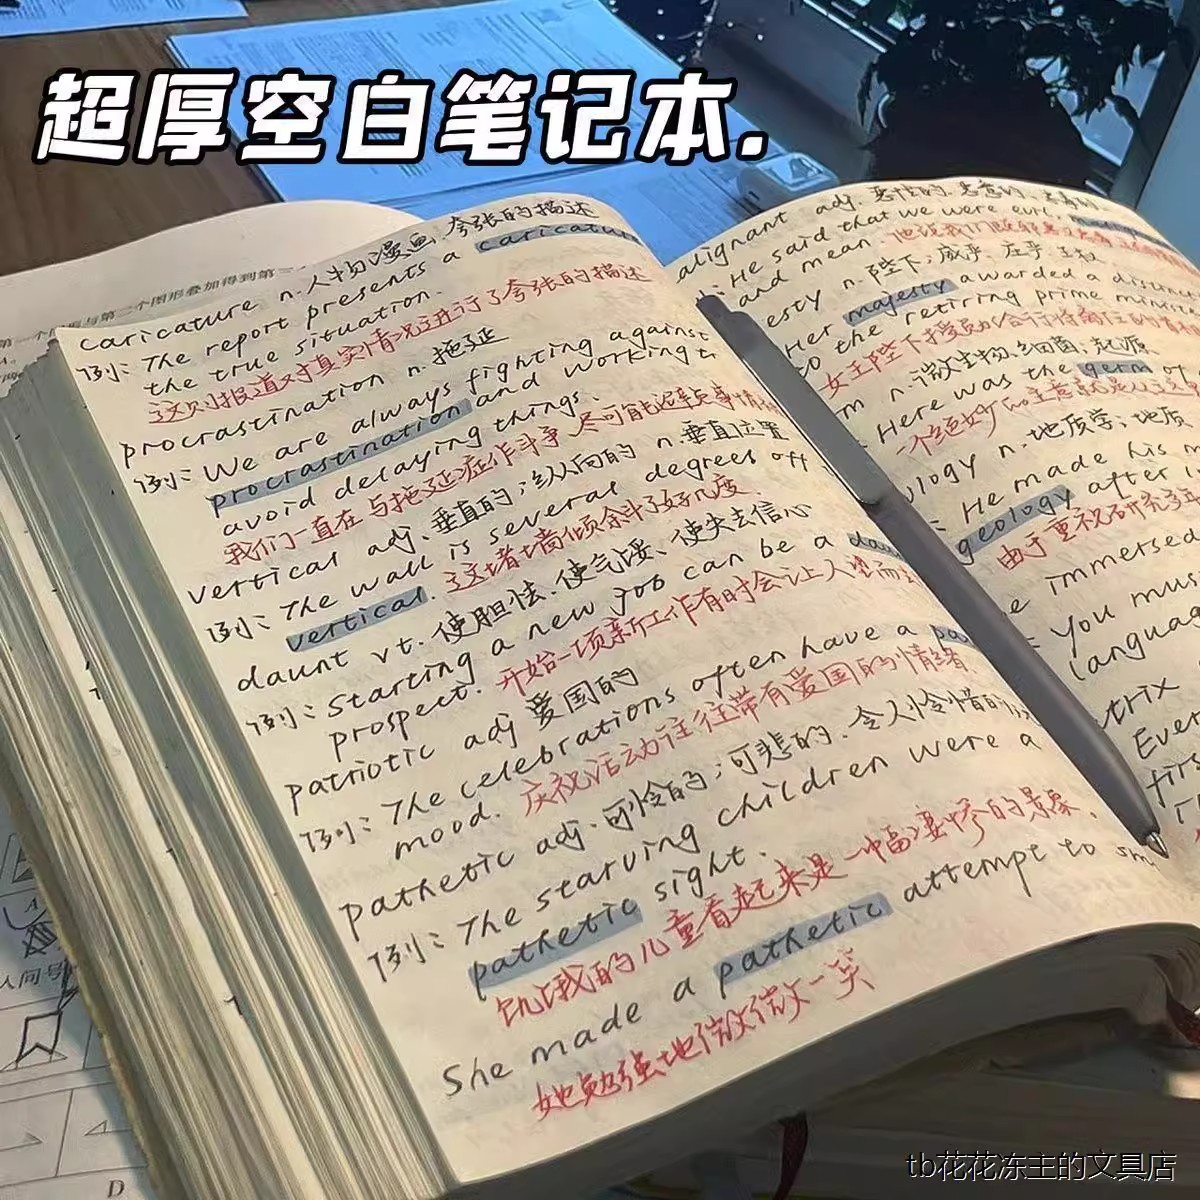 超厚空白笔记本.
caricature n.人物漫画、夸张的描述
例：The report presents a caricature
the true situation.
这则报道对真实情况进行了夸张的描述
procrastination n.拖延
例：We are always fighting against
procrastination and working t
avoid delaying things.
我们一直在与拖延症作斗争、尽可能迟延事情
vertical adj.垂直的；纵向的 n.垂直位置
例：The wall is several degrees off
vertical. 这堵墙倾斜了好几度.
daunt vt.使胆怯、使气馁、使失去信心
例：Starting a new job can be a dau
prospect. 开始一项新工作有时会让人望而
patriotic adj 爱国的
例：The celebrations often have a pa
mood. 庆祝活动往往带有爱国的情绪.
pathetic adj.可怜的；可悲的、令人怜惜的
例：The starving children were a
pathetic sight.
饥饿的儿童看起来是一幅凄惨的景象.
She made a pathetic attempt to sm
她勉强地微微一笑
alignant adj.恶性的、恶意的、
: He said that we were evil,
and mean.
esty n.陛下；威严、庄严、王权
Her majesty awarded a distinc
to the retiring prime minist
女王陛下授予
m n.微生物、细菌、起源
: Here was the germ of
一个绝妙的主意就是从这
ology n.地质学；地质
: He made his n
geology after
由于重视研究
e immersed
: You mus
langua
trix
Ever
firs
第一个图形与第二个图形叠加得到第三
A.
D
tb花花冻主的文具店